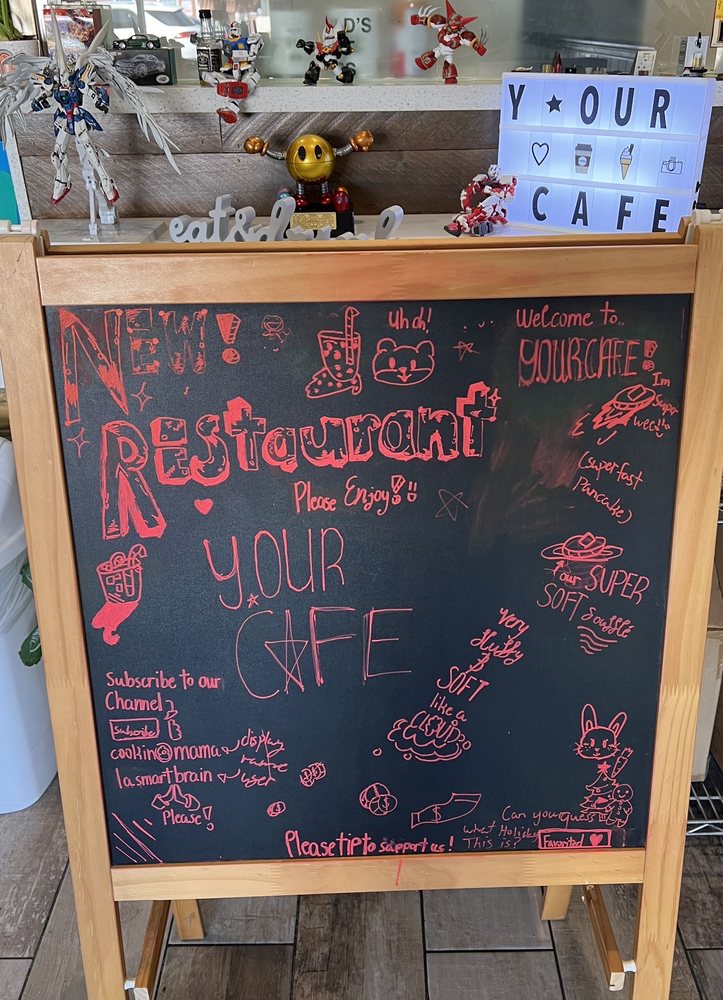 D'S
Y★OUR
CAFE
eat&
NEW!
Uh oh!
Welcome to..
YOURCAFE!
I'm
super
Restaurant
(superfast
Pancake)
Please Enjoy!
Y.OUR
CAFE
our SUPER
SOFT Souffle
very
fluffy
SOFT
like a
CLOUD
Subscribe to our
Channel
Subscribe
cookin mama
display
name
lasmartbrain
user
Please!
Can you guess
what Holiday
This is?
Favorited
Please tip to support us!